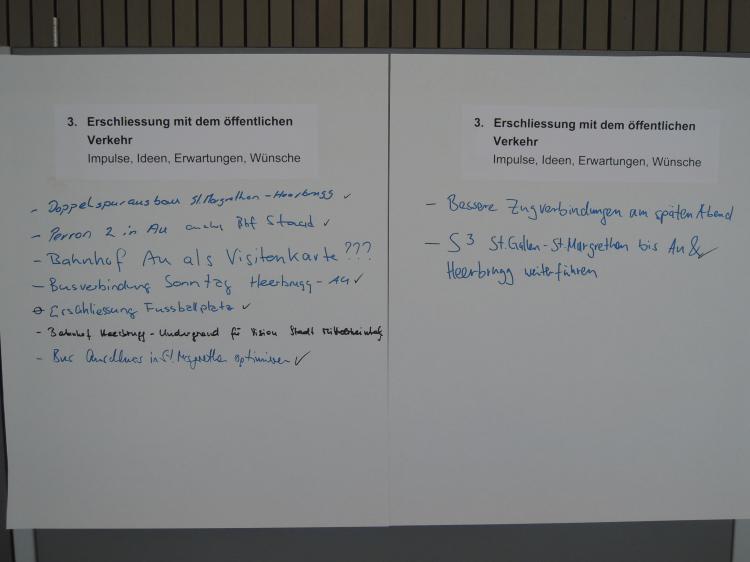 3. Erschliessung mit dem öffentlichen
Verkehr
Impulse, Ideen, Erwartungen, Wünsche
- Doppelspurausbau St.Margrethen-Heerbrugg ✓
- Perron 2 in Au Bhf Staad ✓
- Bahnhof Au als Visitenkarte???
- Busverbindung Sonntag Heerbrugg - Au ✓
- Erschliessung Fussballplatz ✓
- Bahnhof Heerbrugg - Underground für Vision Stadt Mittelrheintal
- Bus Anschluss in St.Margrethen optimieren ✓
3. Erschliessung mit dem öffentlichen
Verkehr
Impulse, Ideen, Erwartungen, Wünsche
- Bessere Zugverbindungen am späten Abend
- S3 St.Gallen-St.Margrethen bis Au &
Heerbrugg weiterführen